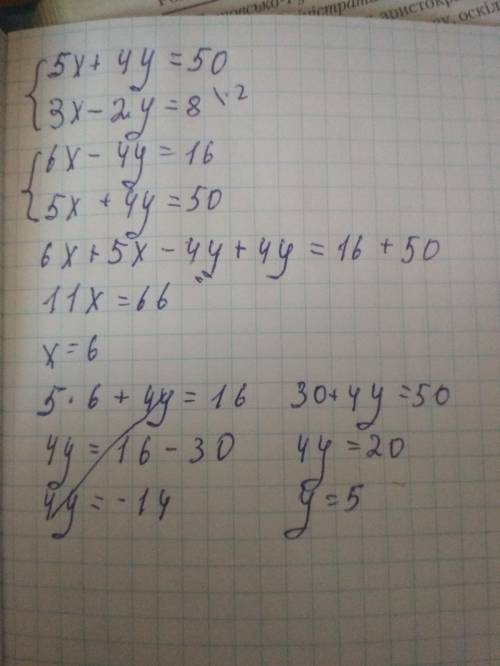 аристокра
оскіл
5x + 4y = 50
3x - 2y = 8 \·2
6x - 4y = 16
5x + 4y = 50
6x + 5x - 4y + 4y = 16 + 50
11x = 66
x = 6
5 · 6 + 4y = 16
4y = 16 - 30
4y = -14
30 + 4y = 50
4y = 20
y = 5